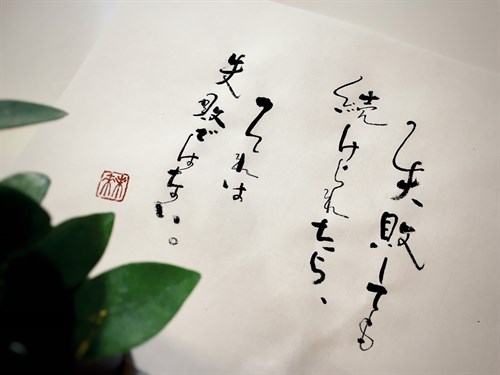 失敗しても
続けられたら、
それは
失敗ではない。